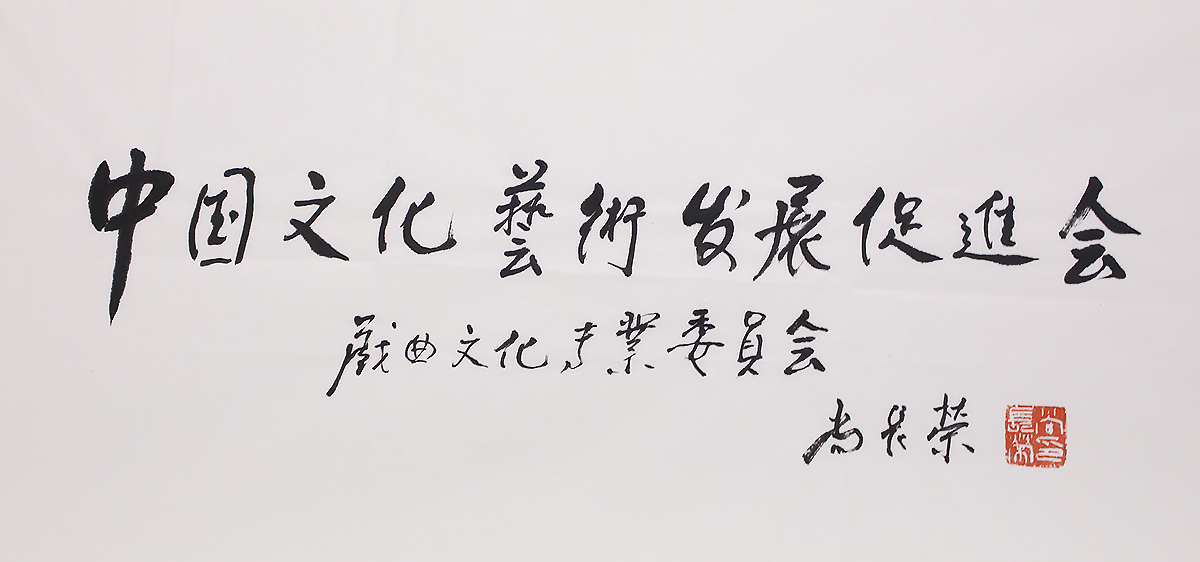 中国文化藝術发展促進会
戲曲文化专業委員会
尚长榮